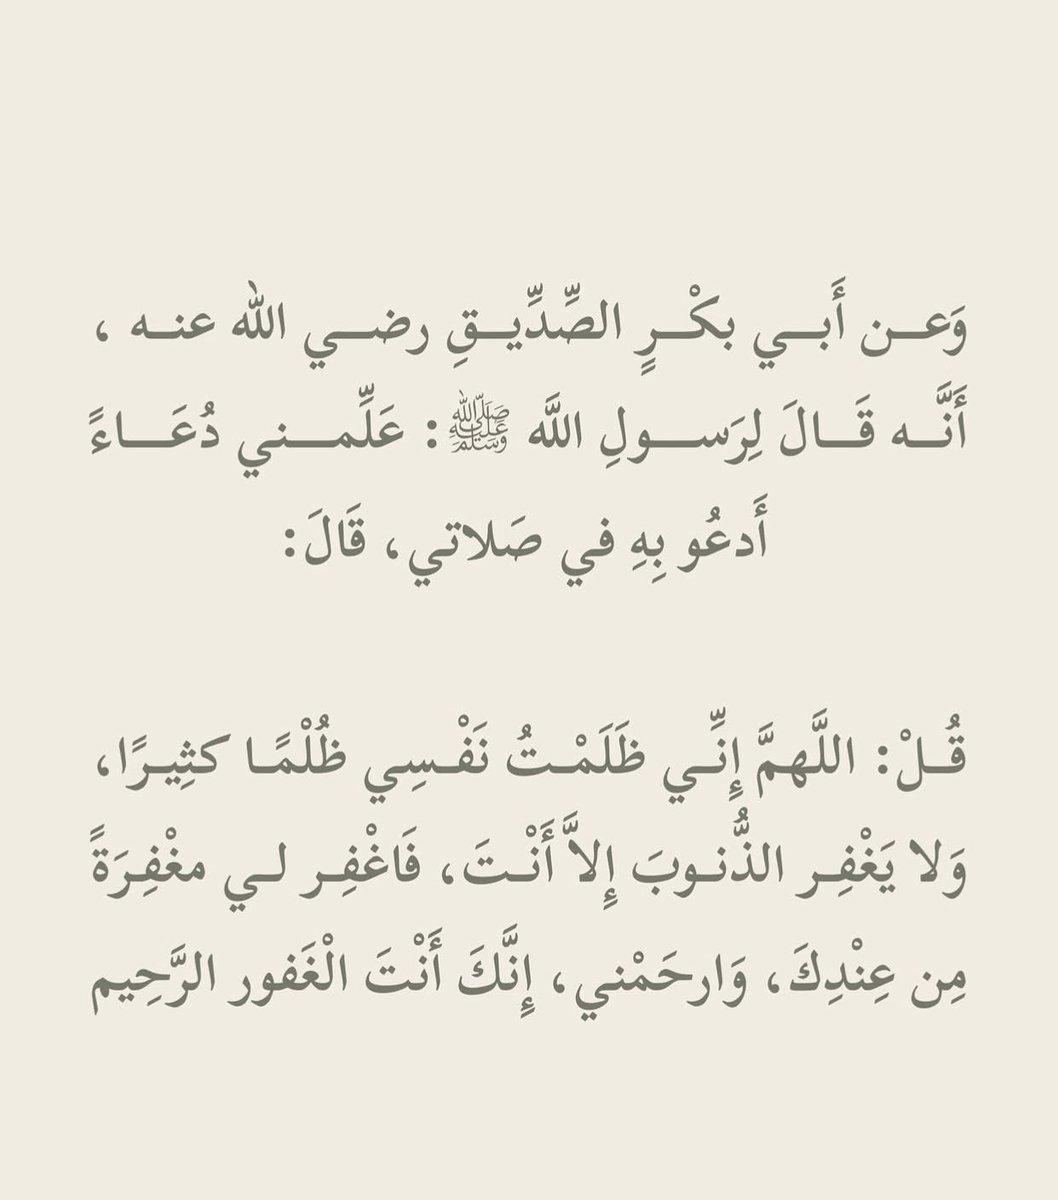 وَعـن أَبـي بكْـرٍ الصِّدِّيـقِ رضـي الله عنـه ،
أَنَّـه قَـالَ لِرَسـولِ اللَّه ﷺ: عَلِّمـني دُعَـاءً
أَدعُو بِهِ في صَلاتي، قَالَ:
قُـلْ: اللَّهمَّ إِنِّـي ظَلَمْـتُ نَفْـسِي ظُلْمًـا كثِيـرًا،
وَلا يَغْفِـر الذُّنـوبَ إِلاَّ أَنْـتَ، فَاغْفِـر لـي مغْفِـرَةً
مِن عِنْدِكَ، وَارحَمْني، إِنَّكَ أَنْتَ الْغَفور الرَّحِيم